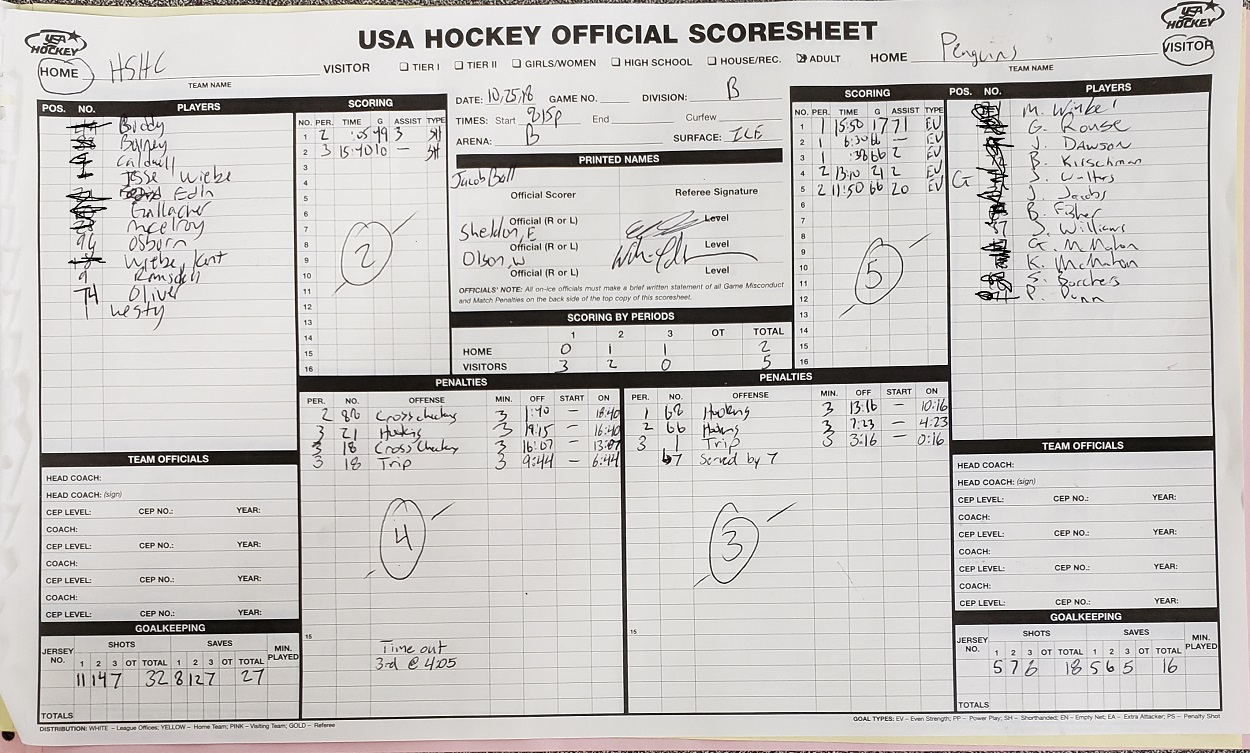 USA HOCKEY OFFICIAL SCORESHEET
USA HOCKEY
HOME HSHC VISITOR
TEAM NAME
TIER I TIER II GIRLS/WOMEN HIGH SCHOOL HOUSE/REC. ADULT
HOME Penguins VISITOR
TEAM NAME
USA HOCKEY
POS. NO. PLAYERS
Buddy
Caldwell
Jesse Wiebe
Edin
Gallagher
McElroy
96 Osburn
Wiebe, Kurt
9 Ramsdell
74 Oliver
1 Westy
SCORING
NO. PER. TIME G ASSIST TYPE
1 2 :05 49 3 SH
2 3 15:40 10 — SH
3
4
5
6
7
8
9
10
11
12
13
14
15
16
2
DATE: 10/25/18 GAME NO. DIVISION: B
TIMES: Start 815p End Curfew
ARENA: B SURFACE: ICE
PRINTED NAMES
Jacob Ball
Official Scorer Referee Signature
Official (R or L) Level
Sheldon, E
Official (R or L) Level
Olson, W
Official (R or L) Level
OFFICIALS' NOTE: All on-ice officials must make a brief written statement of all Game Misconduct
and Match Penalties on the back side of the top copy of this scoresheet.
SCORING BY PERIODS
1 2 3 OT TOTAL
HOME 0 1 1 2
VISITORS 3 2 0 5
SCORING
NO. PER. TIME G ASSIST TYPE
1 1 15:50 17 71 EV
2 1 6:30 66 — EV
3 1 :38 66 2 EV
4 2 13:10 21 2 EV
5 2 11:50 66 20 EV
6
7
8
9
10
11
12
13
14
15
16
5
POS. NO. PLAYERS
M. Winkel
G. Rouse
J. Dawson
B. Kirschman
G J. Walters
J. Jacobs
B. Fisher
J. Williams
G. McMahon
K. McMahon
S. Borchers
P. Dunn
PENALTIES
PER. NO. OFFENSE MIN. OFF START ON
2 86 Cross checking 3 1:40 — 18:40
3 21 Hooking 3 19:15 — 16:40
3 18 Cross Checking 3 16:07 — 13:07
3 18 Trip 3 9:44 — 6:44
4
15
Time out
3rd @ 4:05
PENALTIES
PER. NO. OFFENSE MIN. OFF START ON
1 62 Hooking 3 13:16 — 10:16
2 66 Hooking 3 7:23 — 4:23
3 1 Trip 3 3:16 — 0:16
67 Served by 7
3
15
TEAM OFFICIALS
HEAD COACH:
HEAD COACH: (sign)
CEP LEVEL: CEP NO.: YEAR:
COACH:
CEP LEVEL: CEP NO.: YEAR:
COACH:
CEP LEVEL: CEP NO.: YEAR:
COACH:
CEP LEVEL: CEP NO.: YEAR:
GOALKEEPING
JERSEY NO. SHOTS SAVES MIN. PLAYED
1 2 3 OT TOTAL 1 2 3 OT TOTAL
11 14 7 32 8 12 7 27
TOTALS
TEAM OFFICIALS
HEAD COACH:
HEAD COACH: (sign)
CEP LEVEL: CEP NO.: YEAR:
COACH:
CEP LEVEL: CEP NO.: YEAR:
COACH:
CEP LEVEL: CEP NO.: YEAR:
COACH:
CEP LEVEL: CEP NO.: YEAR:
GOALKEEPING
JERSEY NO. SHOTS SAVES MIN. PLAYED
1 2 3 OT TOTAL 1 2 3 OT TOTAL
5 7 6 18 5 6 5 16
TOTALS
DISTRIBUTION: WHITE – League Offices; YELLOW – Home Team; PINK – Visiting Team; GOLD – Referee
GOAL TYPES: EV – Even Strength; PP – Power Play; SH – Shorthanded; EN – Empty Net; EA – Extra Attacker; PS – Penalty Shot